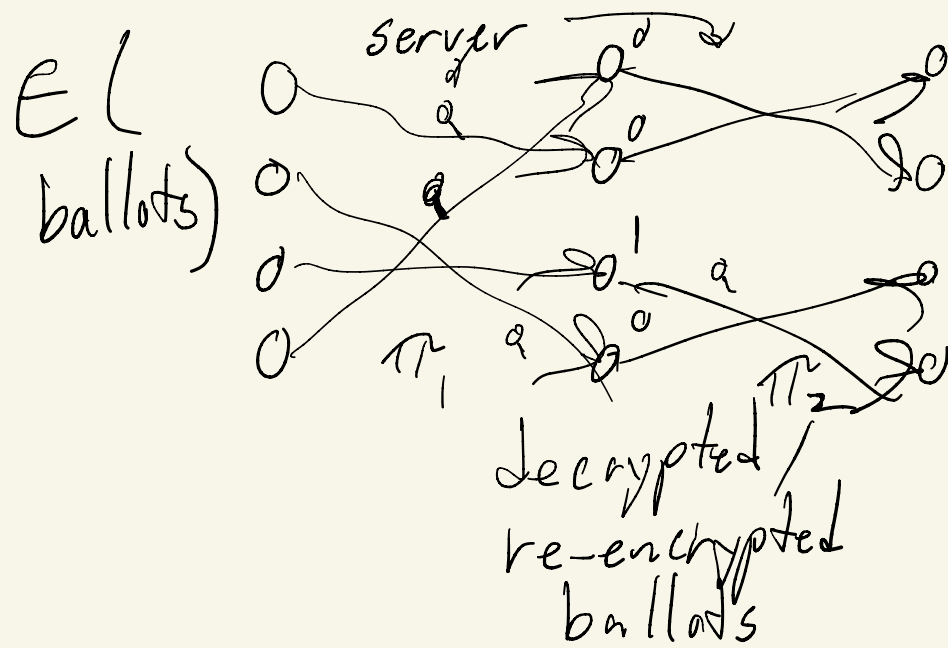 server
E(
ballots)
π1
π2
decrypted /
re-encrypted
ballads